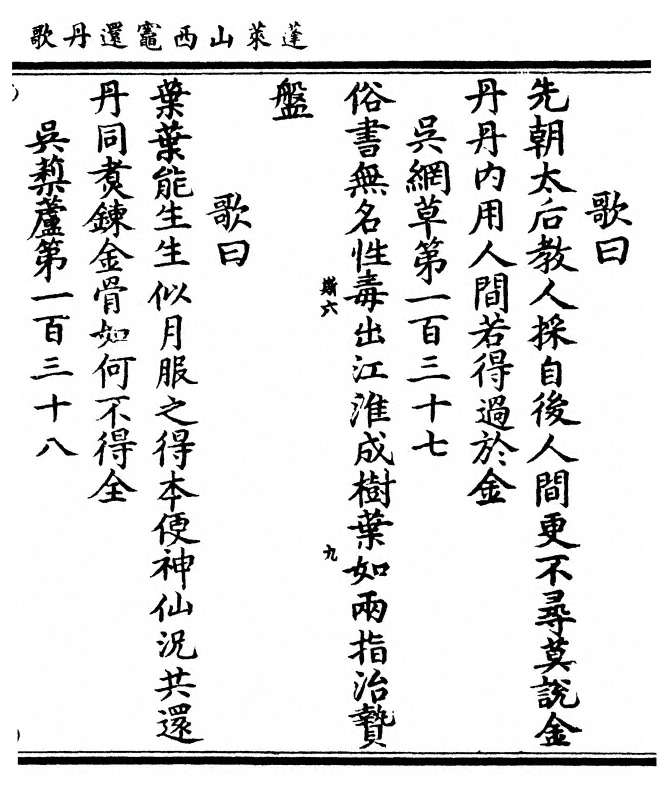 蓬萊山西竈還丹歌
歌曰
先朝太后教人採自後人間更不尋莫說金
丹丹內用人間若得過於金
吳網草第一百三十七
俗書無名性毒出江淮成樹葉如兩指治贄
盤
歌曰
葉葉能生生似月服之得本便神仙況共還
丹同煑鍊金骨如何不得全
吳蔾蘆第一百三十八
九